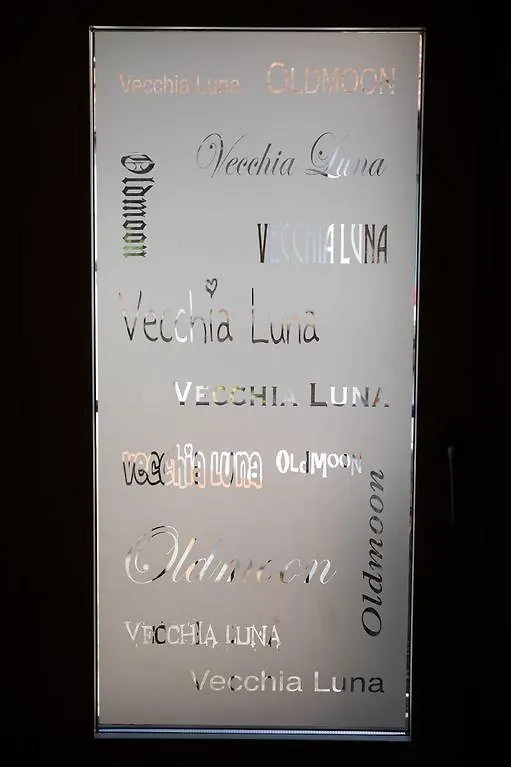 Vecchia Luna OLDMOON
Vecchia Luna
Oldmoon
VECCHIA LUNA
Vecchia Luna
VECCHIA LUNA
vecchia luna OLdMOON
Oldmoon
Oldmoon
VECCHIA LUNA
Vecchia Luna